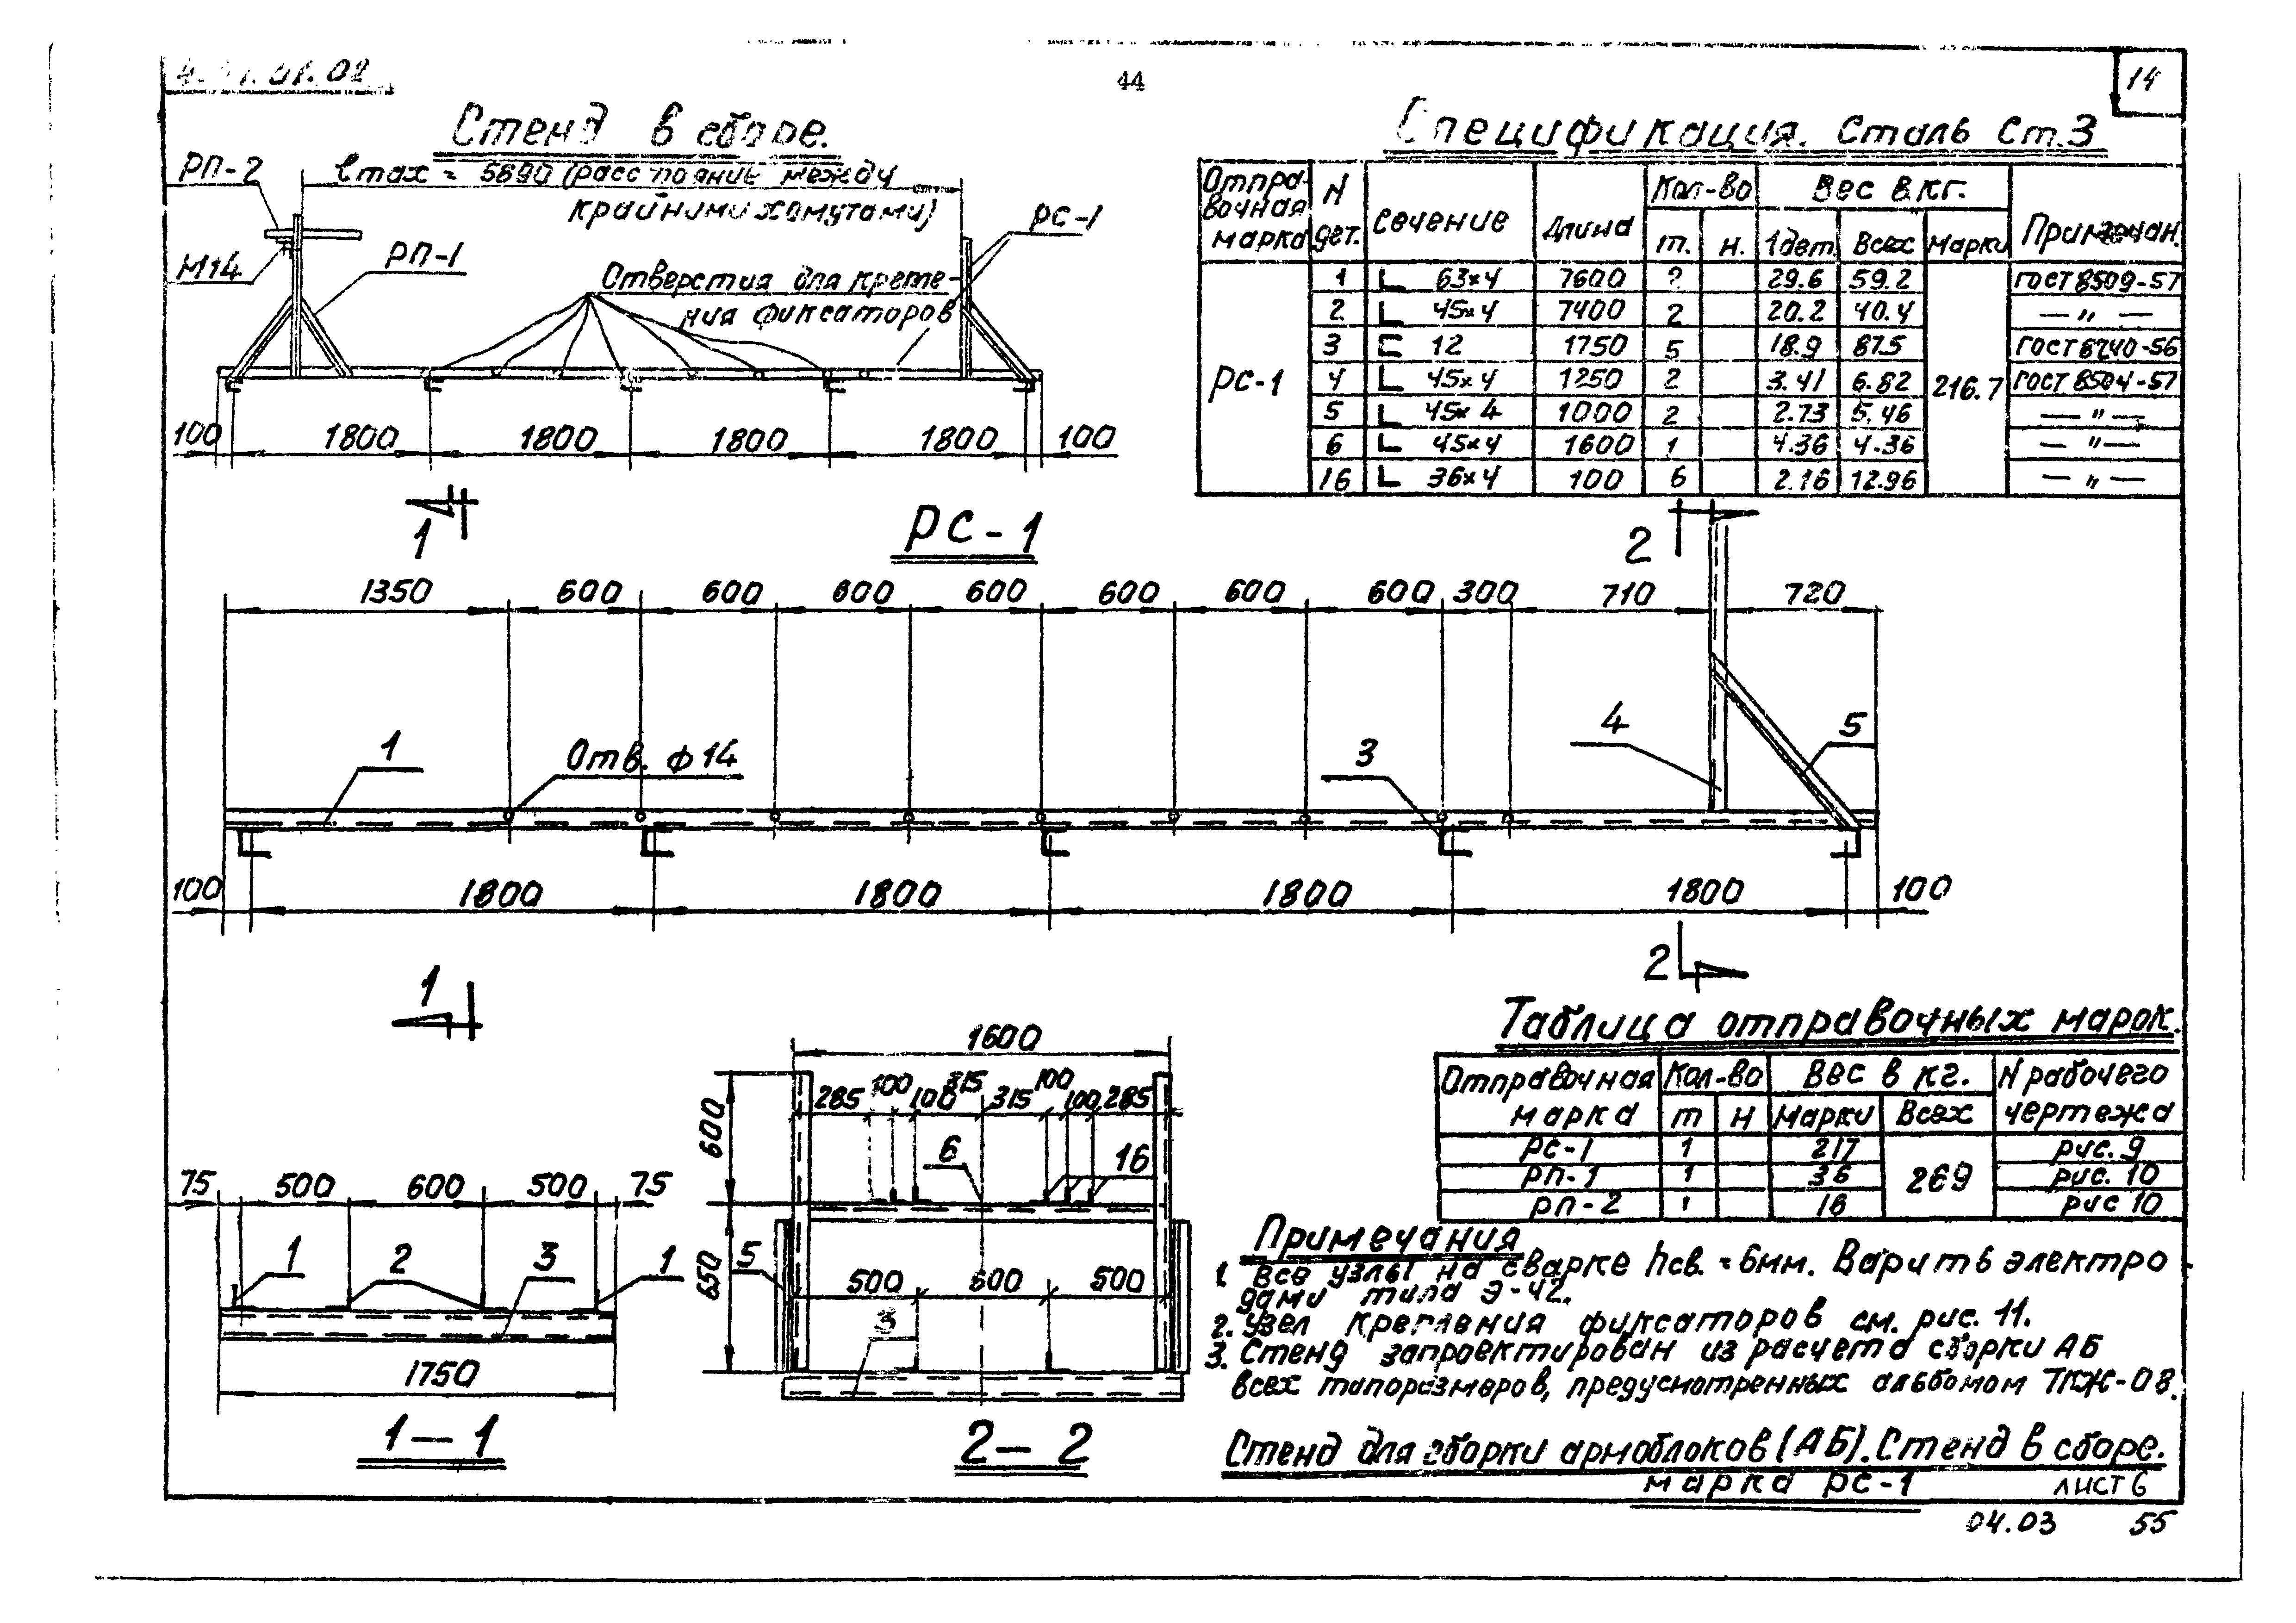 44
14
Стенд в сборе.
РП-2
ℓmax = 5890 (расстояние между
крайними хомутами)
РС-1
М14
РП-1
Отверстия для крепе-
ния фиксаторов
100 1800 1800 1800 1800 100
Спецификация. Сталь Ст.3
Отпра-вочная марка | N дет. | Сечение | Длина | Кол-во | Вес в кг. | Примечан.
т. | н. | 1дет. | Всех | Марки
РС-1 | 216.7
1 | L 63×4 | 7600 | 2 | 29.6 | 59.2 | ГОСТ 8509-57
2 | L 45×4 | 7400 | 2 | 20.2 | 40.4 | — " —
3 | [ 12 | 1750 | 5 | 18.9 | 87.5 | ГОСТ 8240-56
4 | L 45×4 | 1250 | 2 | 3.41 | 6.82 | ГОСТ 8504-57
5 | L 45×4 | 1000 | 2 | 2.73 | 5.46 | — " —
6 | L 45×4 | 1600 | 1 | 4.36 | 4.36 | — " —
16 | L 36×4 | 100 | 6 | 2.16 | 12.96 | — " —
1
РС-1
2
1350 600 600 600 600 600 600 600 300 710 720
1
Отв. ϕ14
3
4
5
100 1800 1800 1800 1800 100
1
2
75 500 600 500 75
1 2 3 1
1750
1-1
1600
285 100 100 315 315 100 100 285
600
6
16
650
5
500 600 500
3
2-2
Таблица отправочных марок.
Отправочная марка | Кол-во | Вес в кг. | N рабочего чертежа
т | н | Марки | Всех
РС-1 | 1 | 217 | 269 | рис. 9
РП-1 | 1 | 36 | рис. 10
РП-2 | 1 | 16 | рис 10
Примечания
1. Все узлы на сварке hсв. = 6мм. Варить электро
дами типа Э-42.
2. Узел крепления фиксаторов см. рис. 11.
3. Стенд запроектирован из расчета сборки АБ
всех типоразмеров, предусмотренных альбомом ТКЖ-08.
Стенд для сборки армоблоков (АБ). Стенд в сборе.
марка РС-1
ЛИСТ 6
04.03 55